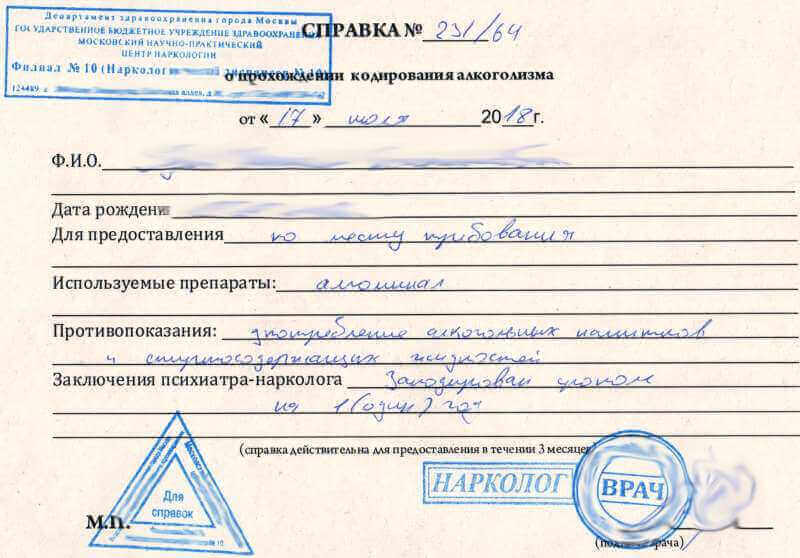 Департамент здравоохранения города Москвы
ГОСУДАРСТВЕННОЕ БЮДЖЕТНОЕ УЧРЕЖДЕНИЕ ЗДРАВООХРАНЕНИЯ
МОСКОВСКИЙ НАУЧНО-ПРАКТИЧЕСКИЙ
ЦЕНТР НАРКОЛОГИИ
Филиал № 10 (Нарколог диспансер № 10)
124489, г.
СПРАВКА № 231/64
о прохождении кодирования алкоголизма
от «17» июля 2018г.
Ф.И.О.
Дата рождени
Для предоставления по месту требования
Используемые препараты:
Противопоказания: употребление алкогольных напитков
и спиртосодержащих жидкостей
Заключения психиатра-нарколога Закодирован сроком
на 1 (один) год
(справка действительна для предоставления в течении 3 месяцев)
НАРКОЛОГ
ВРАЧ
Для
справок
№ 10
М.П.
врача)